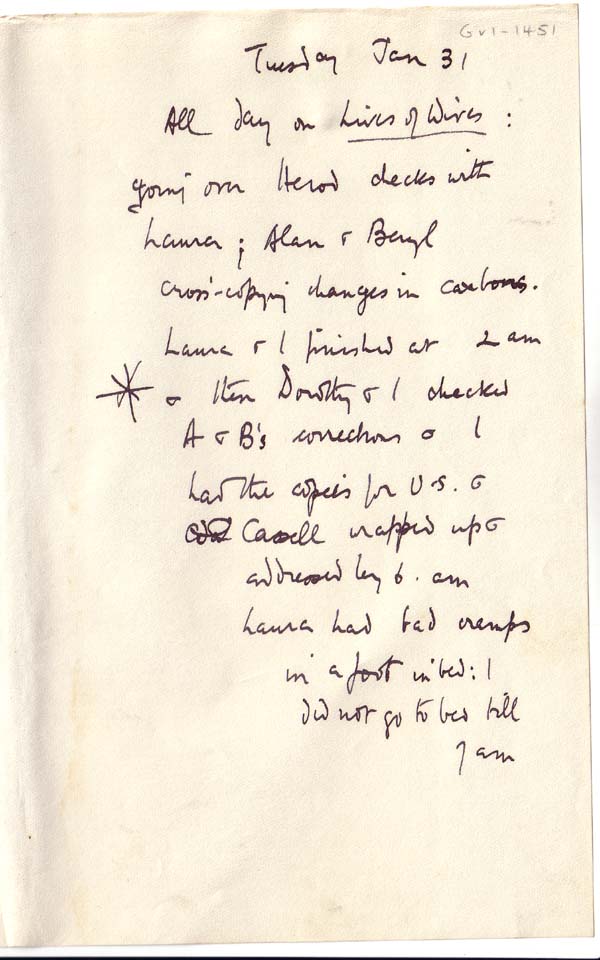 Gv1-1451
Tuesday Jan 31
All day on Lives of Wives :
going over Herod checks with
Laura ; Alan & Beryl
cross-copying changes in carbons.
Laura & I finished at 2 am
& then Dorothy & I checked
A & B's corrections & I
had the copies for U.S. &
Cassell wrapped up &
addressed by 6. am
Laura had bad cramps
in a foot in bed : I
did not go to bed till
7 am